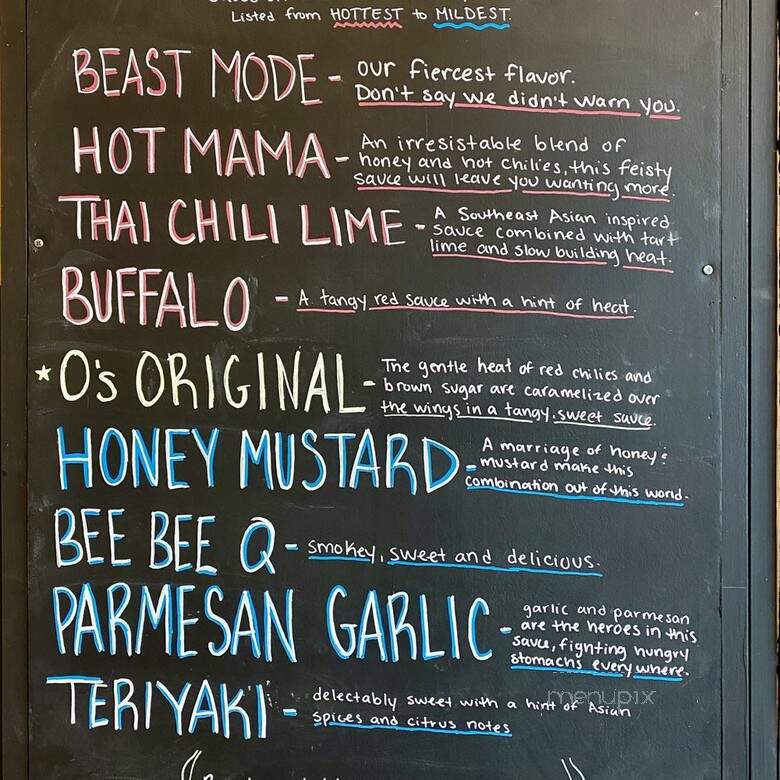 Listed from HOTTEST to MILDEST.
BEAST MODE - our fiercest flavor.
Don't say we didn't warn you.
HOT MAMA - An irresistable blend of
honey and hot chilies, this feisty
sauce will leave you wanting more.
THAI CHILI LIME - A Southeast Asian inspired
sauce combined with tart
lime and slow building heat.
BUFFALO - A tangy red sauce with a hint of heat.
*O's ORIGINAL - The gentle heat of red chilies and
brown sugar are caramelized over
the wings in a tangy, sweet sauce.
HONEY MUSTARD - A marriage of honey &
mustard make this
combination out of this world.
BEE BEE Q - smokey, sweet and delicious.
PARMESAN GARLIC - garlic and parmesan
are the heroes in this
sauce, fighting hungry
stomachs everywhere.
TERIYAKI - delectably sweet with a hint of Asian
spices and citrus notes
menupix